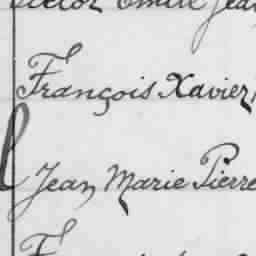 Victor Emile Jean
François Xavier
Jean Marie Pierre